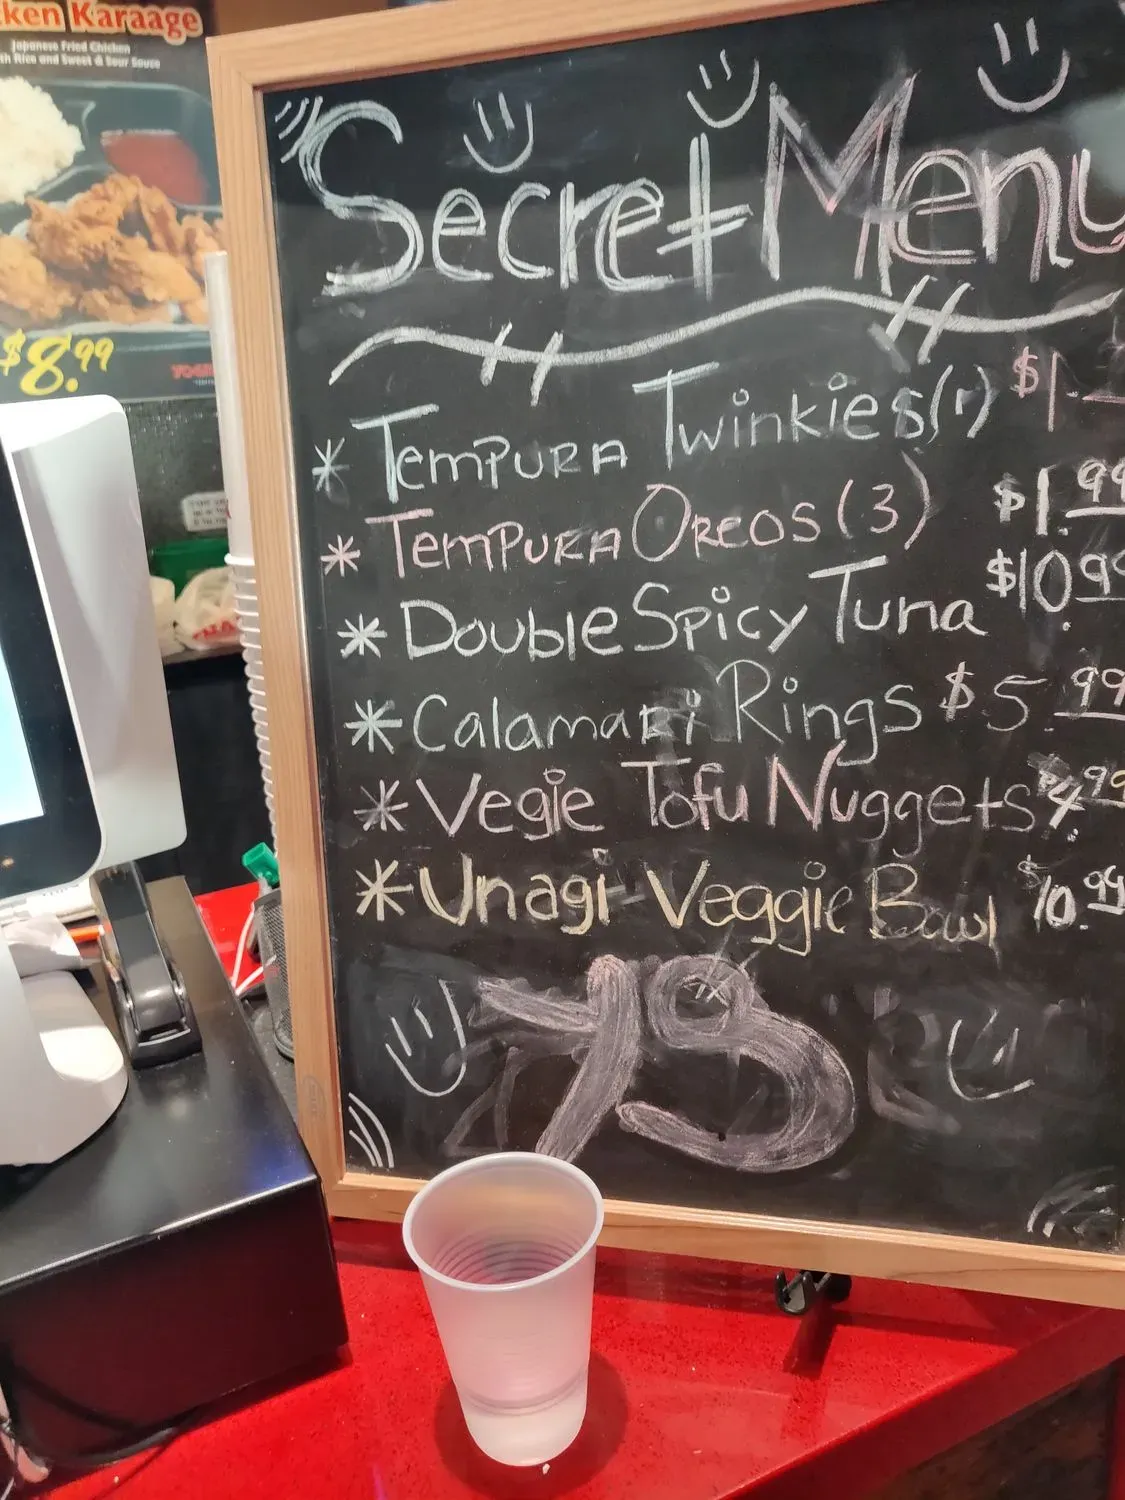 ken Karaage
Japanese Fried Chicken
th Rice and Sweet & Sour Sauce
$8.99
Secret Menu
* Tempura Twinkies (1) $1.
* Tempura Oreos (3) $1.99
* Double Spicy Tuna $10.99
* Calamari Rings $5.99
* Vegie Tofu Nuggets $4.99
* Unagi Veggie Bowl $10.99